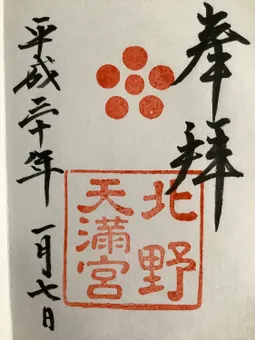 奉拝
北野
天満宮
平成三十年 一月七日